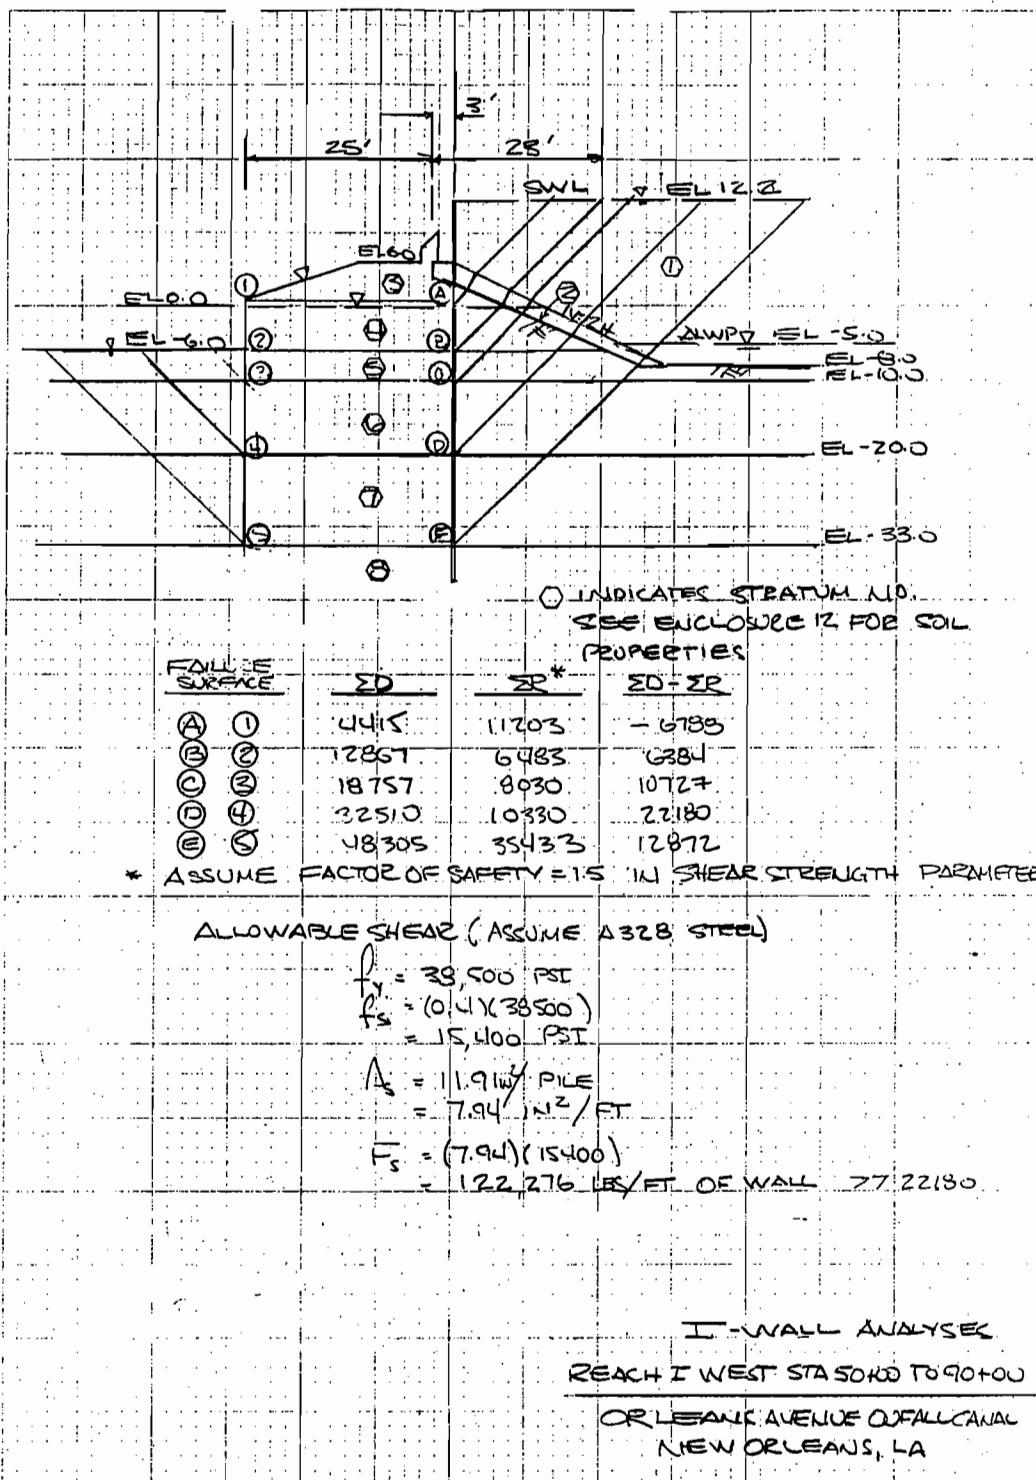 3'
25' 28'
SWL EL 12.2
EL 6.0
1
1 3 2
EL 0.0 A
4
EL -6.0 2 B ALWP EL -5.0
EL -8.0
3 5 EL -10.0
6
4 D EL -20.0
7
5 E EL -33.0
8
INDICATES STRATUM NO.
SEE ENCLOSURE 12 FOR SOIL
PROPERTIES
SURFACE ΣD ΣR* ΣD - ΣR
A 1 4415 11203 - 6788
B 2 12867 6483 6384
C 3 18757 8030 10727
D 4 32510 10330 22180
E 5 48305 35433 12872
* ASSUME FACTOR OF SAFETY = 1.5 IN SHEAR STRENGTH PARAMETE
ALLOWABLE SHEAR (ASSUME A328 STEEL)
fy = 38,500 PSI
fs = (0.4)(38500)
= 15,400 PSI
As = 11.9 IN²/ PILE
= 7.94 IN²/FT
Fs = (7.94)(15400)
= 122,276 LBS/FT OF WALL >> 22180
I-WALL ANALYSES
REACH I WEST STA 50+00 TO 90+00
ORLEANS AVENUE OUFALL CANAL
NEW ORLEANS, LA